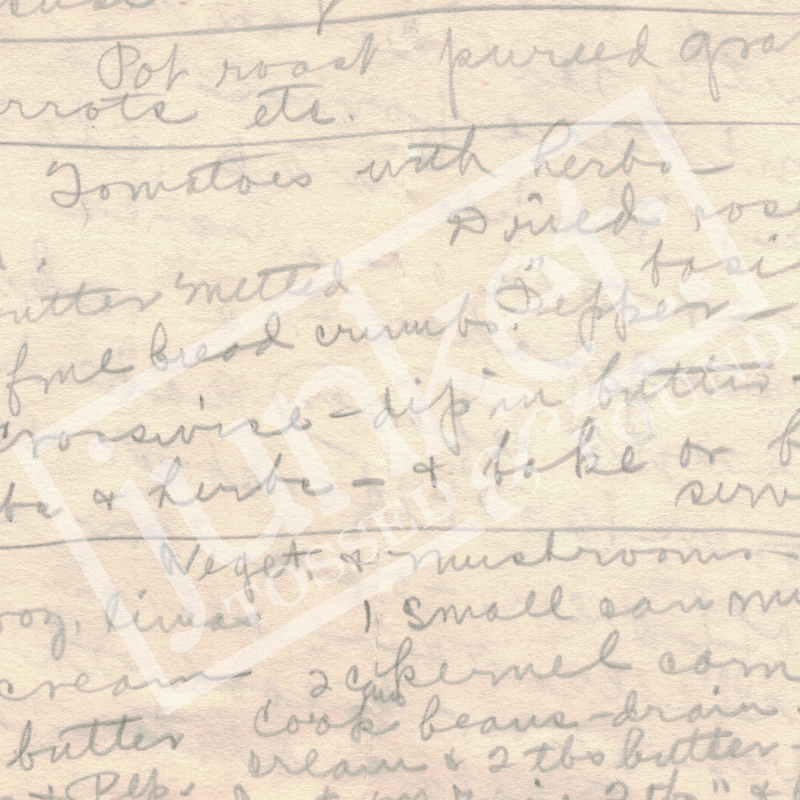 Pot roast pureed gra
rrots etc.
Tomatoes with herbs
Dried ros
basi
utter melted
Pepper
fine bread crumbs.
crosswise - dip in butter -
bs & herbs - & bake or b
serv
Veget. & mushrooms
roz. limas 1 small can mu
cream 2 c kernel corn
Cook beans - drain
butter cream & 2 tbs butter
& Pep.
junket.
TOSSED & FOUND